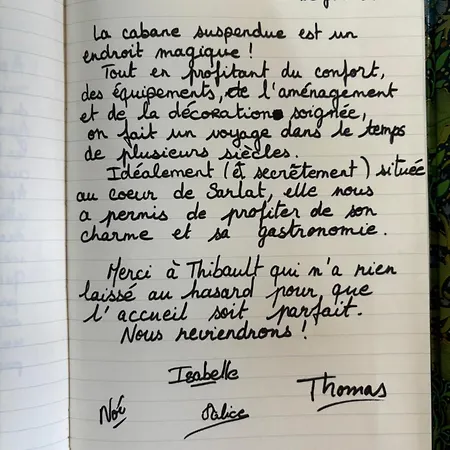 La cabane suspendue est un
endroit magique !
Tout en profitant du confort,
des équipements, de l'aménagement
et de la décoration soignée,
on fait un voyage dans le temps
de plusieurs siècles.
Idéalement (et secrètement) située
au coeur de Sarlat, elle nous
a permis de profiter de son
charme et sa gastronomie.
Merci à Thibault qui n'a rien
laissé au hasard pour que
l'accueil soit parfait.
Nous reviendrons !
Isabelle
Thomas
Noé